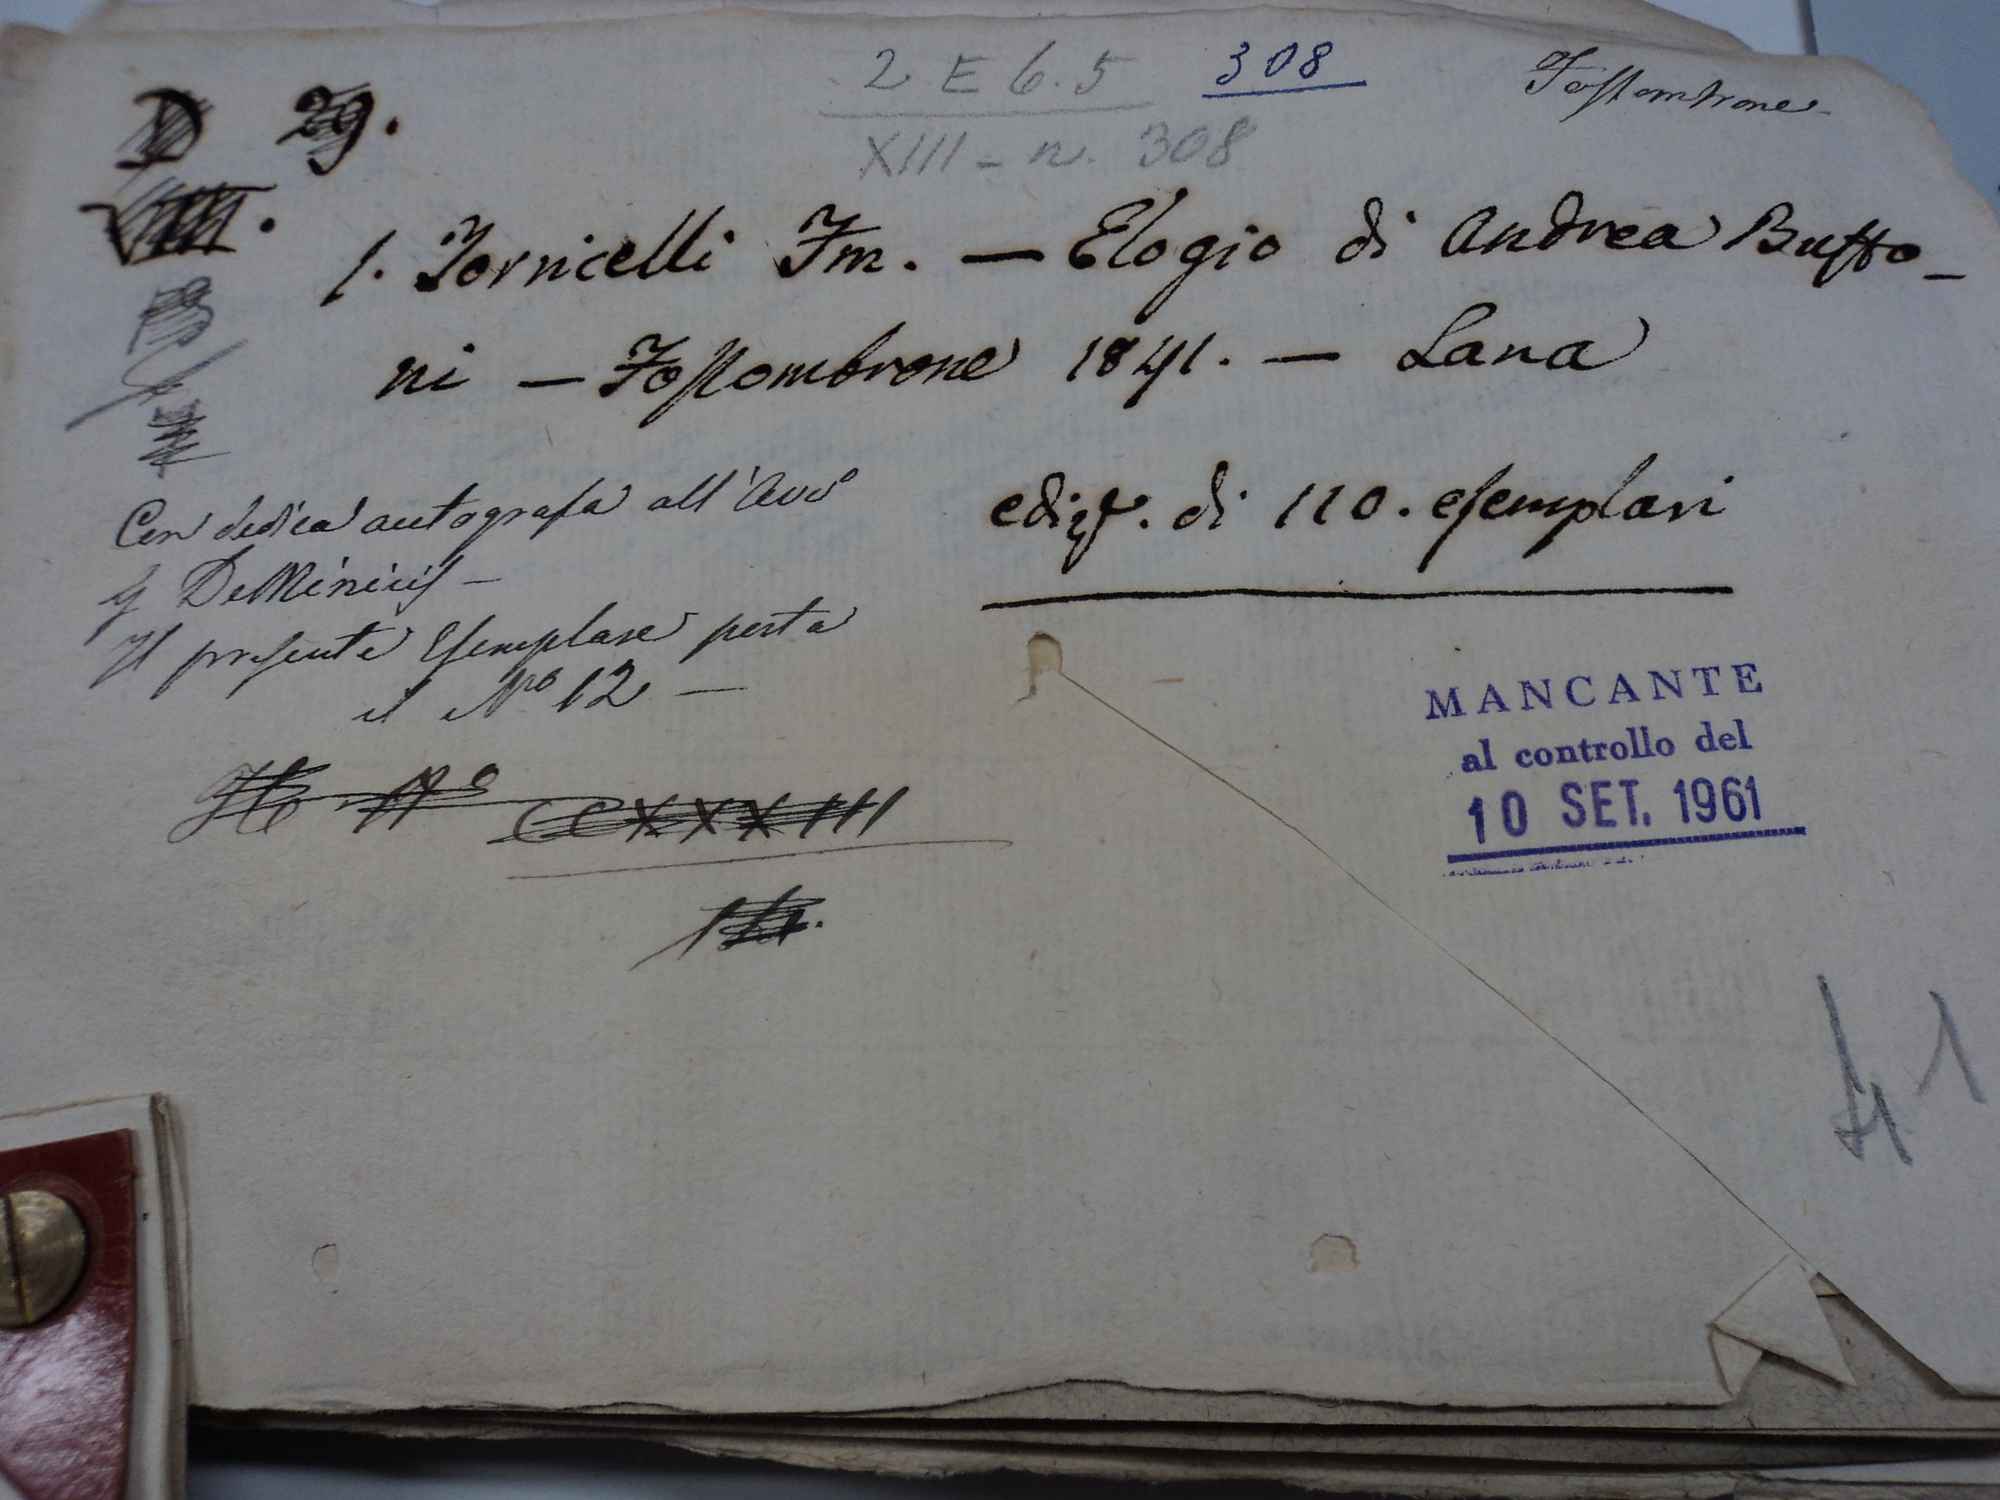 2 E 6.5
308
Fossombrone
XIII - n. 308
D 29.
VIII.
1. Torricelli Fm. — Elogio di Andrea Buffo-
ni — Fossombrone 1841. — Lana
ediz. di 110. esemplari
Con dedica autografa all'Avv°
G DeMinicis —
Il presente Esemplare porta
il N° 12 —
N° CCXXXIII
MANCANTE
al controllo del
10 SET. 1961
41